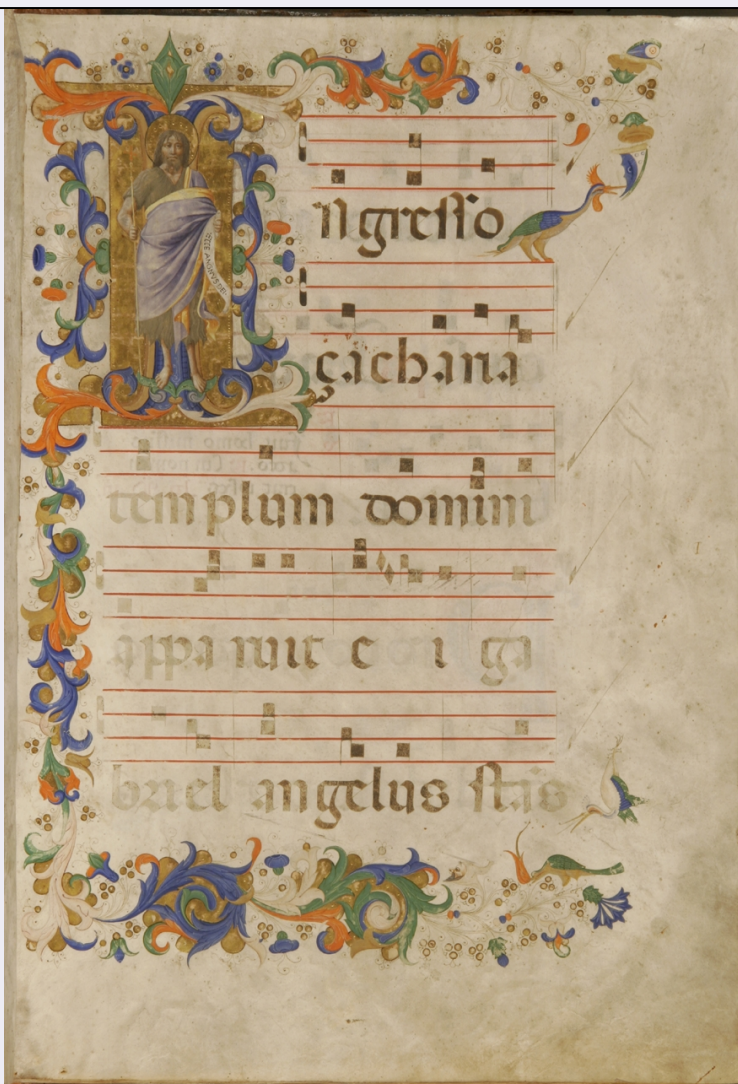 ngresso
çacharia
templum domini
apparuit e i ga
briel angelus stās